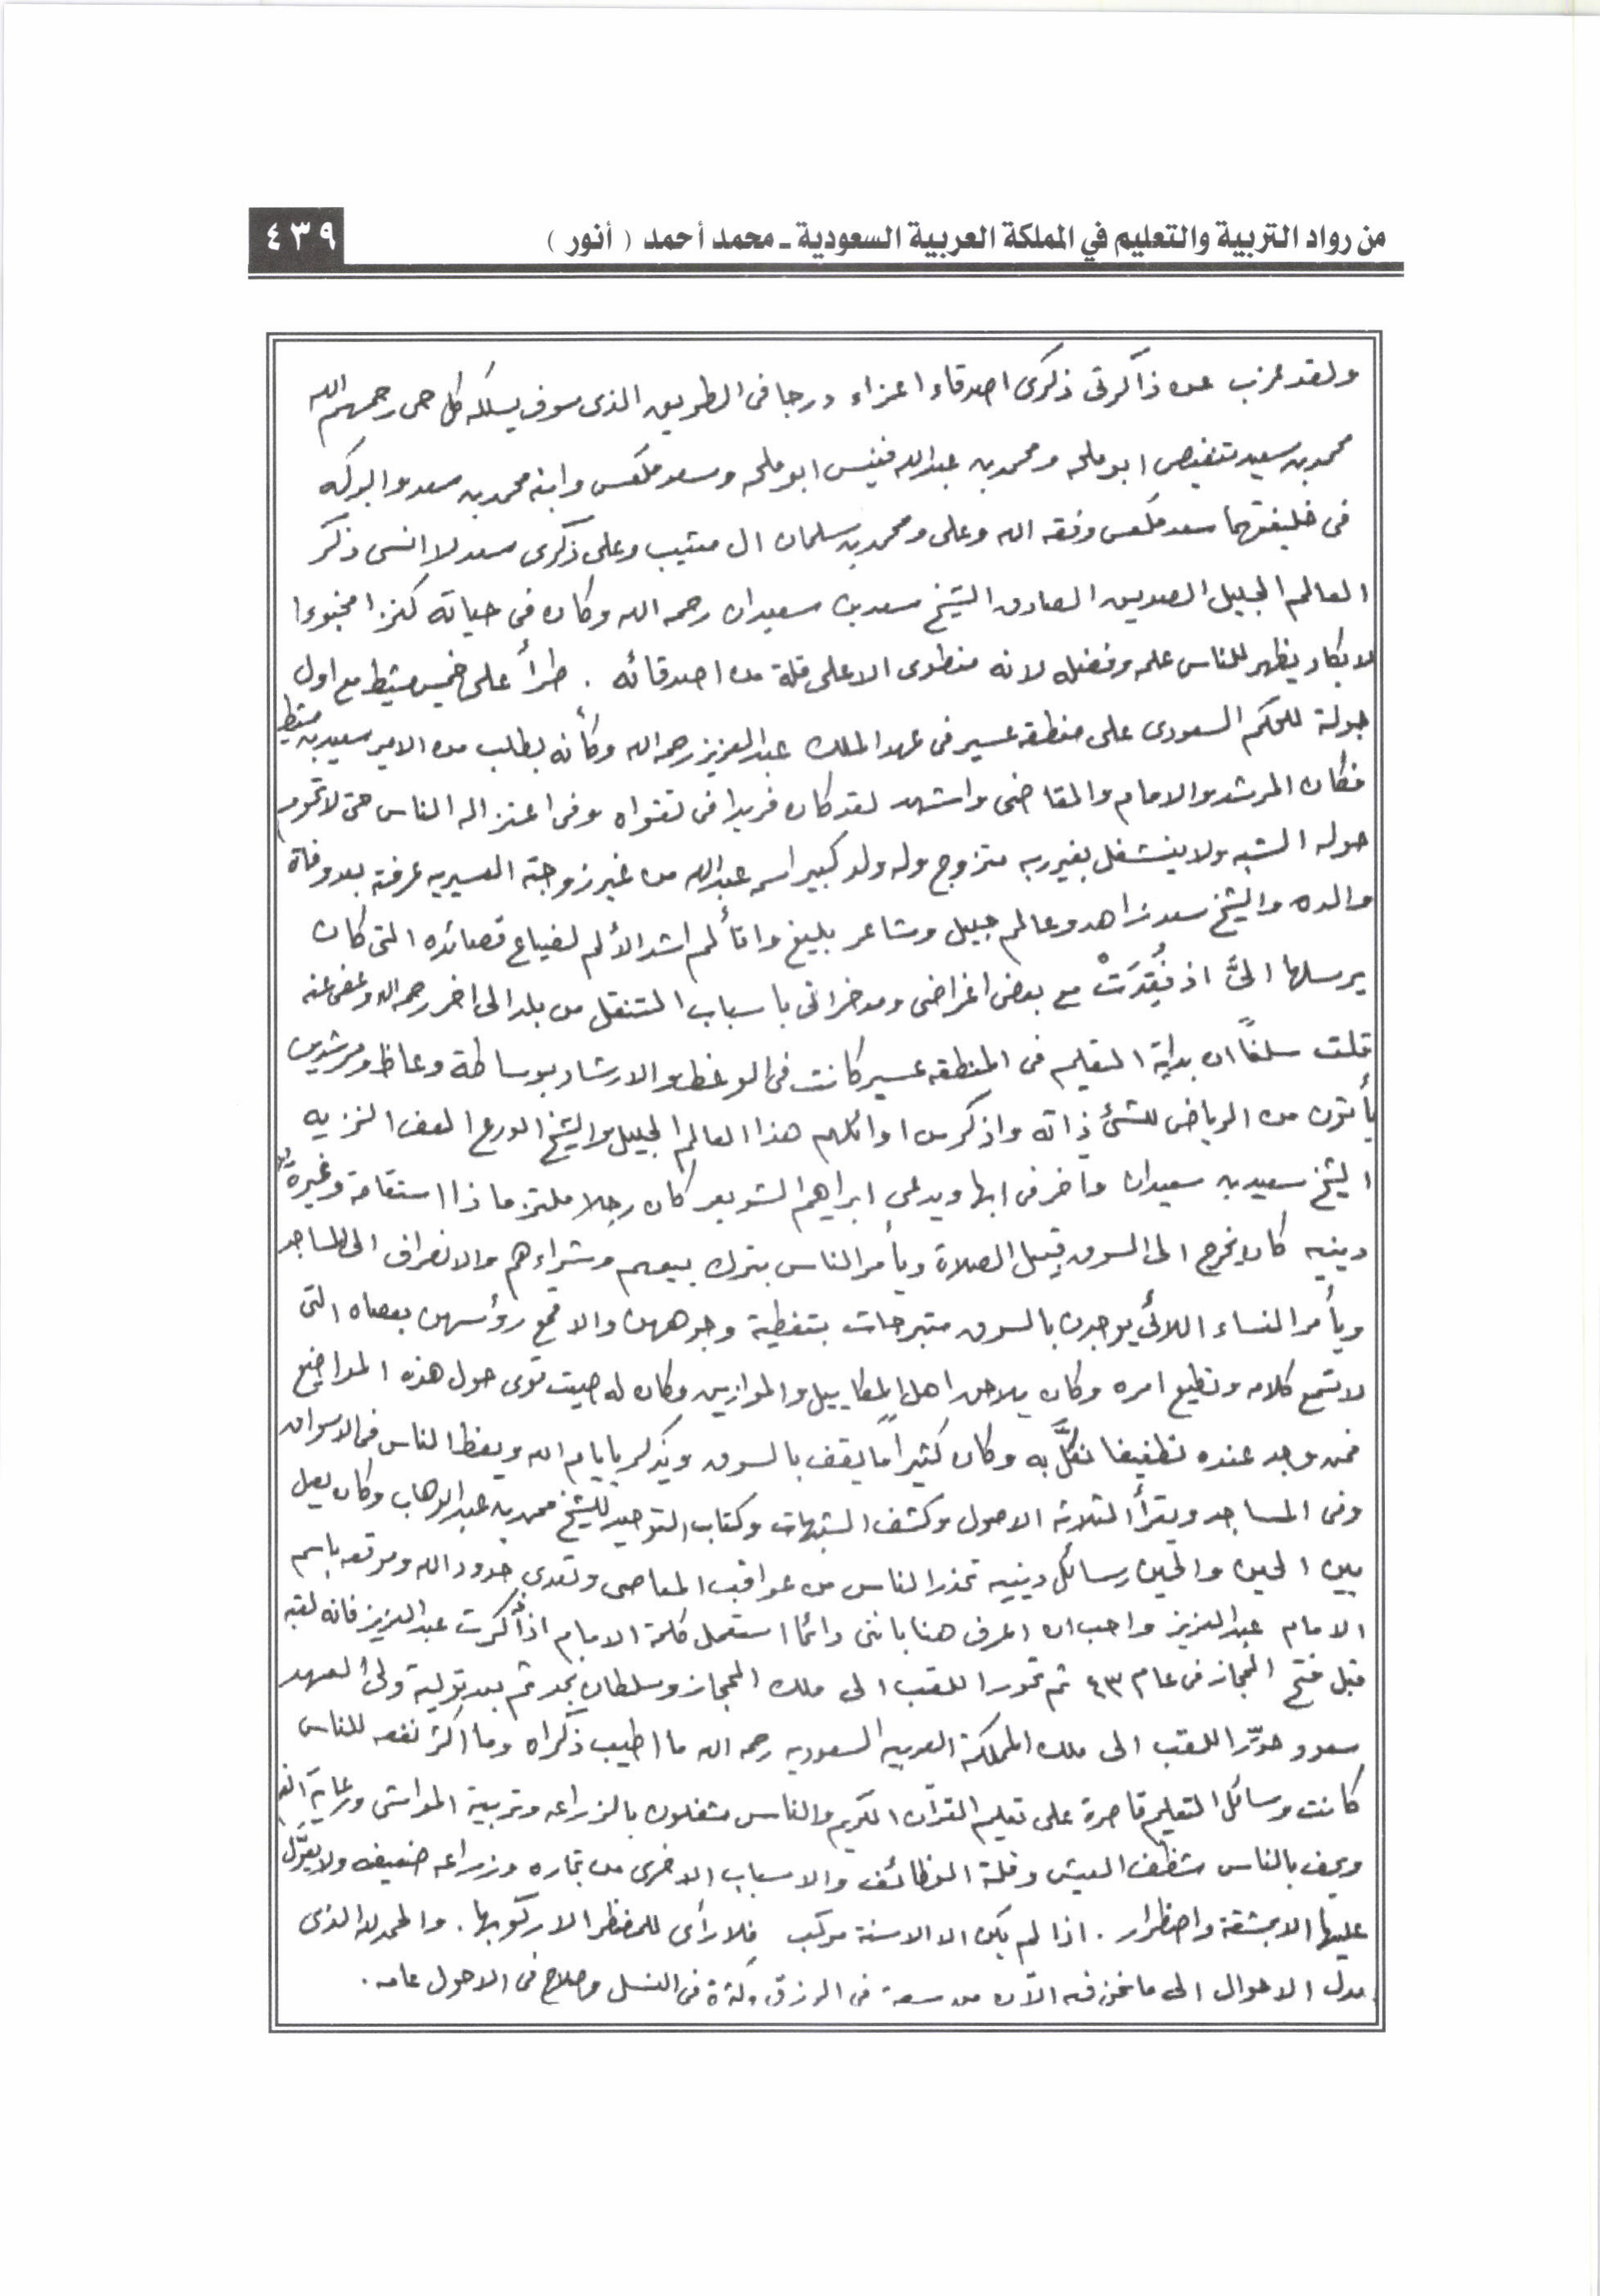 من رواد التربية والتعليم في المملكة العربية السعودية ـ محمد أحمد ( أنور )
٤٣٩
ولقد عزب عن ذاكرتى ذكرى اصدقاء اعزاء درجا فى الطريق الذى سوف يسلكه كل حى رحمهم الله
محمد بن سعيد ابو ملحه ومحمد بن عبدالله ابو ملحه وسعد ملعس وابنه محمد بن سعد والبركه
فى خليفتهما سعد ملعس وفقه الله وعلى ومحمد بن سلمان ال متيب وعلى ذكرى سعد لا انسى ذكر
العالم الجليل الصديق الصادق الشيخ سعد بن سعيدان رحمه الله وكان فى حياته كنزا مخبوءا
لا يكاد يظهر للناس علمه وفضله لانه منطوى الا على قلة من اصدقائه . طرأ على خميس مشيط مع اول
جولة للحكم السعودى على منطقة عسير فى عهد الملك عبدالعزيز رحمه الله وكأنه بطلب من الامير سعيد بن مشيط
فكان المرشد والامام والقاضى واشهد لقد كان فريدا فى تقواه وفى اعتزاله الناس حتى لا تحوم
حوله الشبه ولا ينشغل بغير ربه متزوج وله ولد كبير اسمه عبدالله من غير زوجته العسيريه عرفته بعد وفاة
والده والشيخ سعد زاهد وعالم جليل وشاعر بليغ واتألم اشد الألم لضياع قصائده التى كان
يرسلها الىَّ اذ فُقِدَتْ مع بعض اغراضى ومدخراتى باسباب التنقل من بلد الى اخر رحمه الله وعفى عنه
قلت سلفاً ان بداية التعليم فى المنطقه عسير كانت فى الوعظ والارشاد بوساطة وعاظ ومرشدين
يأتون من الرياض للشئ ذاته واذكر من اوائلهم هذا العالم الجليل والشيخ الورع العف النزيه
الشيخ سعيد بن سعيدان واخر فى ابها ويدعى ابراهيم الشويعر كان رجلا ملتزما ذا استقامة وغيرة
دينيه كان يخرج الى السوق قبيل الصلاة ويأمر الناس بترك بيعهم وشراءهم والانصراف الى المساجد
ويأمر النساء اللائى يوجدن بالسوق متبرجات بتغطية وجوههن والا قمع رؤسهن بعصاه التى
لا تسمع كلامه وتطيع امره وكان يلاحق اهل المكاييل والموازين وكان له صيت قوى حول هذه المواضيع
فمن وجد عنده تطفيفا نكَّل به وكان كثيراً ما يقف بالسوق ويذكر بايام الله ويعظ الناس فى الاسواق
وفى المساجد ويقرأ الثلاثة الاصول وكشف الشبهات وكتاب التوحيد للشيخ محمد بن عبدالوهاب وكان يصل
بين الحين والحين رسائل دينيه تحذر الناس من عواقب المعاصى وتعدى حدود الله وموقعه باسم
الامام عبدالعزيز واحب ان اعرف هنا باننى دائما استعمل كلمة الامام اذا ذكرت عبدالعزيز فانه لقبه
قبل فتح الحجاز فى عام ٤٣ ثم تحور اللقب الى ملك الحجاز وسلطان نجد ثم بعد تولية ولى العهد
سعود حوّر اللقب الى ملك المملكة العربيه السعوديه رحمه الله ما اطيب ذكراه وما اكثر نفعه للناس
كانت وسائل التعليم قاصرة على تعليم القرآن الكريم والناس مشغلون بالزراعه وتربية المواشى ورعاية
ويحف بالناس شظف العيش وقلة الوظائف والاسباب الاخرى من تجاره وزراعه ضعيفه ولا يعوَّل
عليها الا بمشقة واضطرار . اذا لم يكن الا الاسنة مركب فلا رأى للمضطر الا ركوبها . والحمد لله الذى
بدل الاحوال الى ما نحن فيه الآن من سعة فى الرزق وكثرة فى النسل وصلاح فى الاحول عامه .